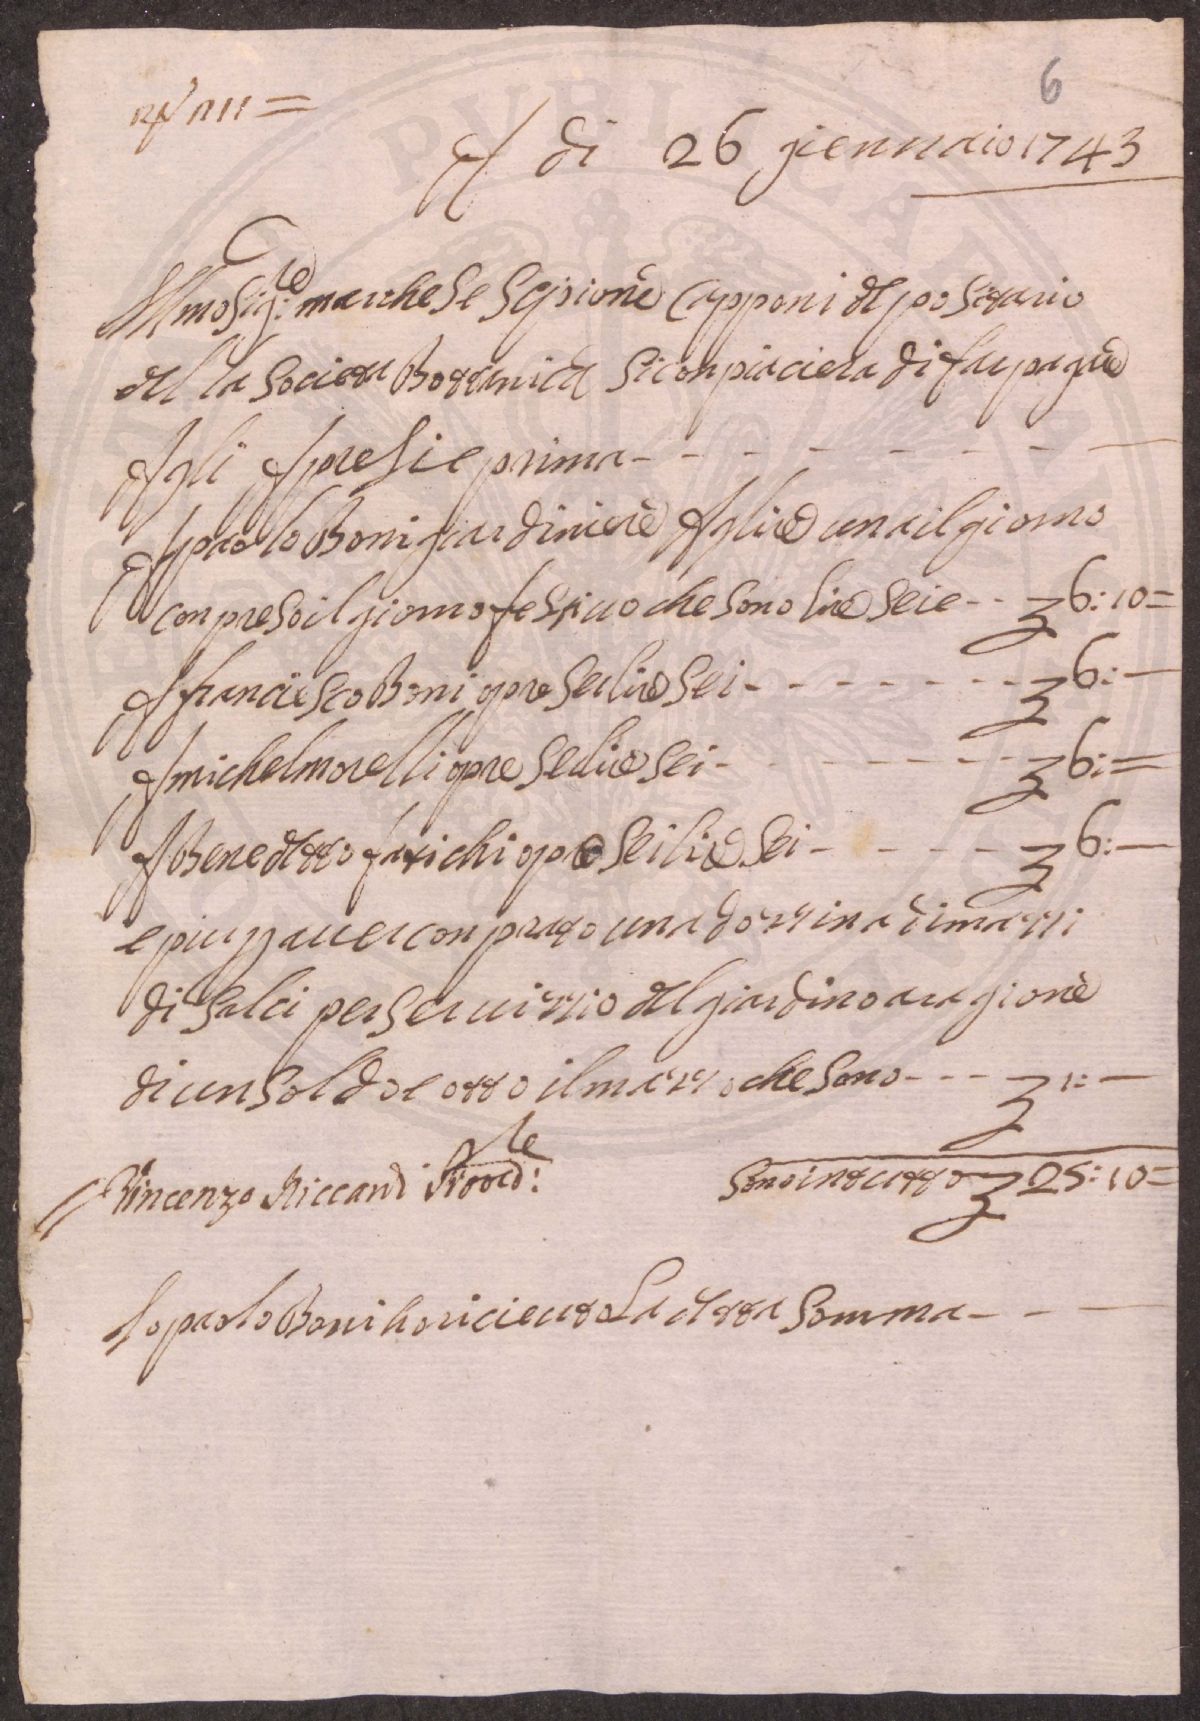 6
A di 26 giennaio 1743
Illmo Sig:re marchese Scipione Capponi depositario
della Societa Bottanica si conpiaciera di far pagare
A gli Apresie prima - - - - - - - -
A paolo Boni giardiniere A lire una il giorno
conpreso il giorno festiuo che sono lire seie - - 6: 10 =
A franciesco Boni opre sei lire sei - - - - - - - 6: —
A michel morelli opre sei lire sei - - - - - - - 6: =
A Benedetto fatichi opre sei lire sei - - - - - 6: —
e piu p auer conprato una dozzina di mazzi
di salci per seruizzio del giardino a ragione
di un soldo e otto il mazzo che sono - - - 1: —
Vincenzo Riccardi Proved:re
Sono in tutto 25: 10 =
Io paolo Boni ho riceuto La detta Somma - - -